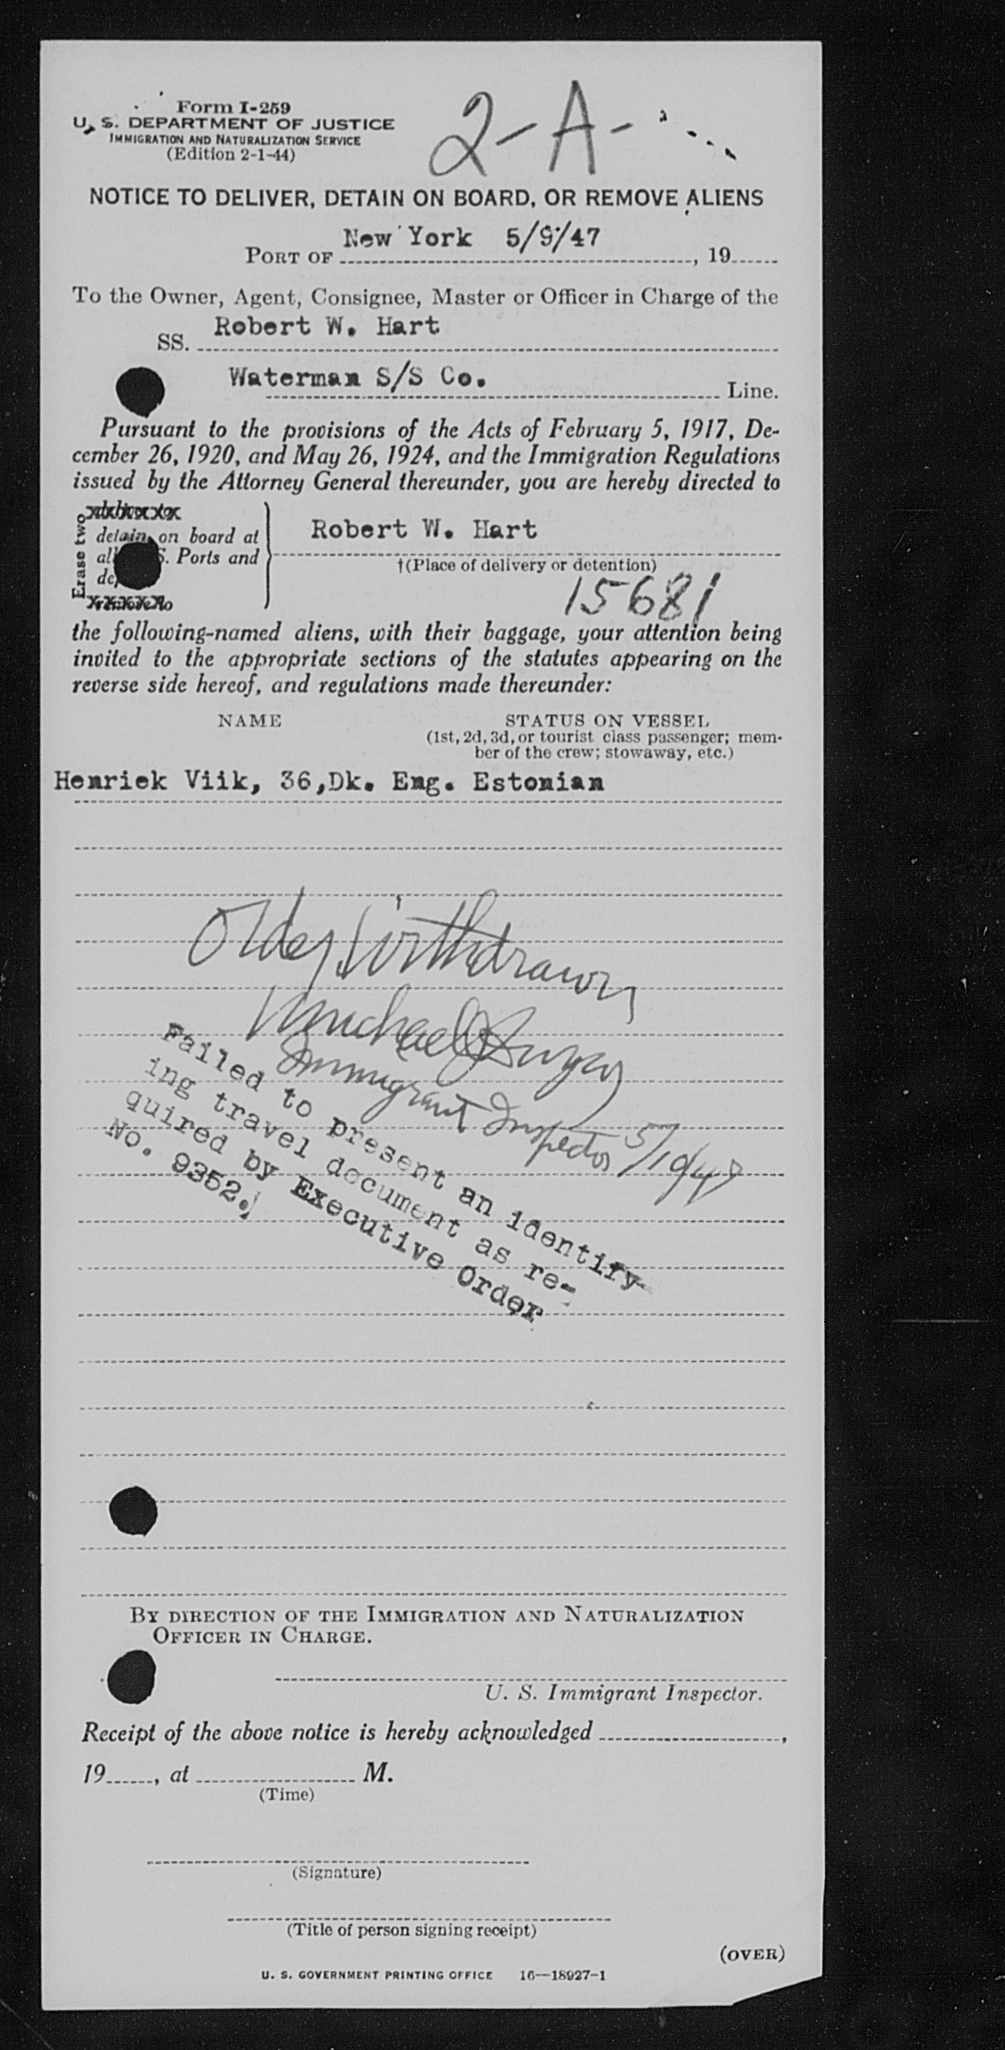 Form I-259
U. S. DEPARTMENT OF JUSTICE
IMMIGRATION AND NATURALIZATION SERVICE
(Edition 2-1-44)
2-A-
NOTICE TO DELIVER, DETAIN ON BOARD, OR REMOVE ALIENS
PORT OF New York 5/9/47, 19
To the Owner, Agent, Consignee, Master or Officer in Charge of the
SS. Robert W. Hart
Waterman S/S Co. Line.
Pursuant to the provisions of the Acts of February 5, 1917, De-
cember 26, 1920, and May 26, 1924, and the Immigration Regulations
issued by the Attorney General thereunder, you are hereby directed to
Erase two
detain on board at
all S. Ports and
Robert W. Hart
†(Place of delivery or detention)
15681
the following-named aliens, with their baggage, your attention being
invited to the appropriate sections of the statutes appearing on the
reverse side hereof, and regulations made thereunder:
NAME STATUS ON VESSEL
(1st, 2d, 3d, or tourist class passenger; mem-
ber of the crew; stowaway, etc.)
Henriek Viik, 36,Dk. Eng. Estonian
Order Withdrawn
Michael
Immigrant Inspector 5/10/47
Failed to present an identify-
ing travel document as re-
quired by Executive Order
No. 9352.
BY DIRECTION OF THE IMMIGRATION AND NATURALIZATION
OFFICER IN CHARGE.
U. S. Immigrant Inspector.
Receipt of the above notice is hereby acknowledged ,
19 , at M.
(Time)
(Signature)
(Title of person signing receipt)
(OVER)
U. S. GOVERNMENT PRINTING OFFICE 16—18927-1